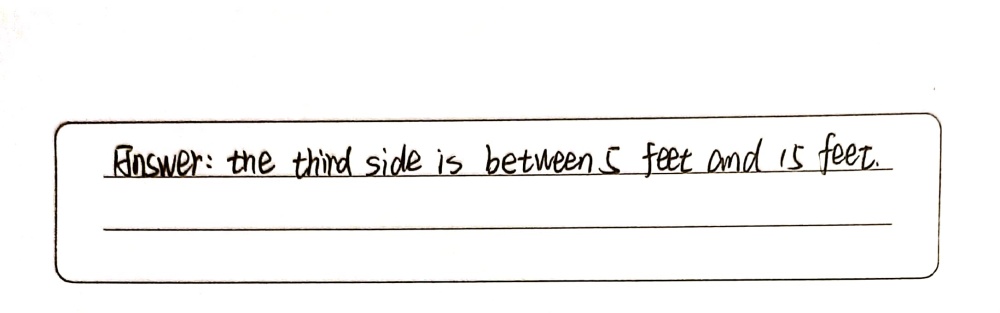 Answer: the third side is between 5 feet and 15 feet.